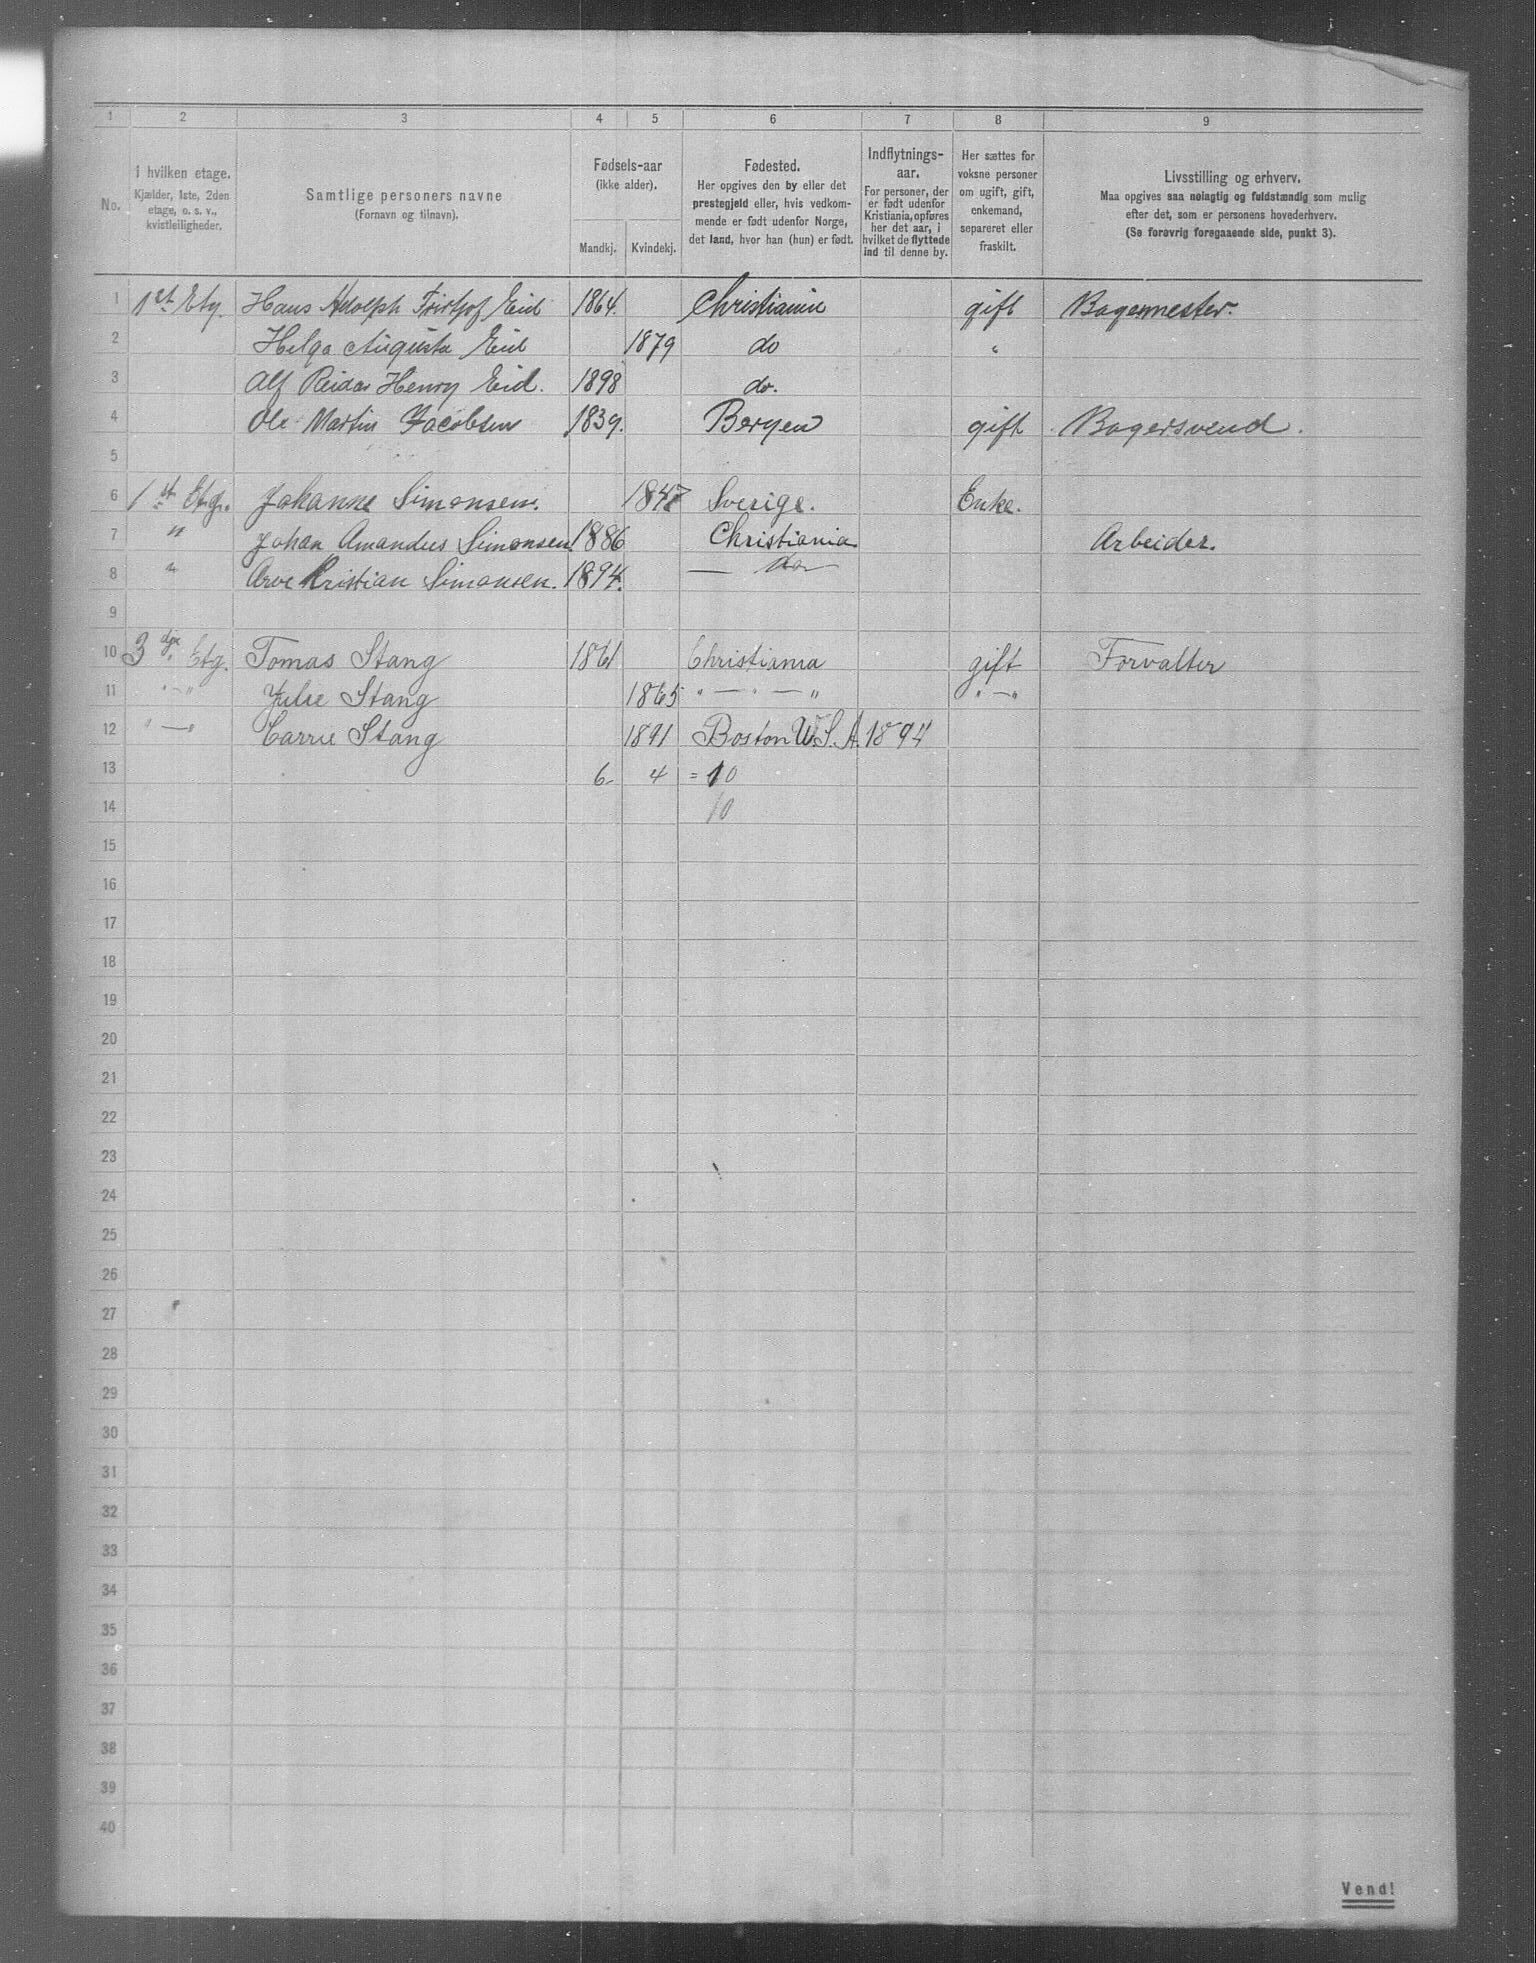 1 2 3 4 5 6 7 8 9
No.
i hvilken etage.
Kjælder, 1ste, 2den
etage, o. s. v.,
kvistleiligheder.
Samtlige personers navne
(Fornavn og tilnavn).
Fødsels-aar
(ikke alder).
Mandkj. Kvindekj.
Fødested.
Her opgives den by eller det
prestegjeld eller, hvis vedkom-
mende er født udenfor Norge,
det land, hvor han (hun) er født.
Indflytnings-
aar.
For personer, der
er født udenfor
Kristiania, opføres
her det aar, i
hvilket de flyttede
ind til denne by.
Her sættes for
voksne personer
om ugift, gift,
enkemand,
separeret eller
fraskilt.
Livsstilling og erhverv.
Maa opgives saa nøiagtig og fuldstændig som mulig
efter det, som er personens hovederhverv.
(Se forøvrig foregaaende side, punkt 3).
1 1st Etg. Hans Adolph Fritjof Eid 1864. Christiania gift Bagermester.
2 Helga Augusta Eid 1879 do "
3 Alf Reidar Henry Eid. 1898 do.
4 Ole Martin Jacobsen 1839. Bergen gift Bagersvend.
5
6 1st Etg. Johanne Simonsen. 1847 Sverige. Enke.
7 " Johan Amandus Simonsen. 1886 Christiania. Arbeider.
8 " Arve Kristian Simonsen. 1894. — do —
9
10 3dje Etg. Tomas Stang 1861 Christiania gift Forvalter
11 "—" Julie Stang 1865 "—"—" "—"
12 "—" Carrie Stang 1891 Boston U.S.A. 1894
13 6 4 = 10
14 10
15
16
17
18
19
20
21
22
23
24
25
26
27
28
29
30
31
32
33
34
35
36
37
38
39
40
Vend!